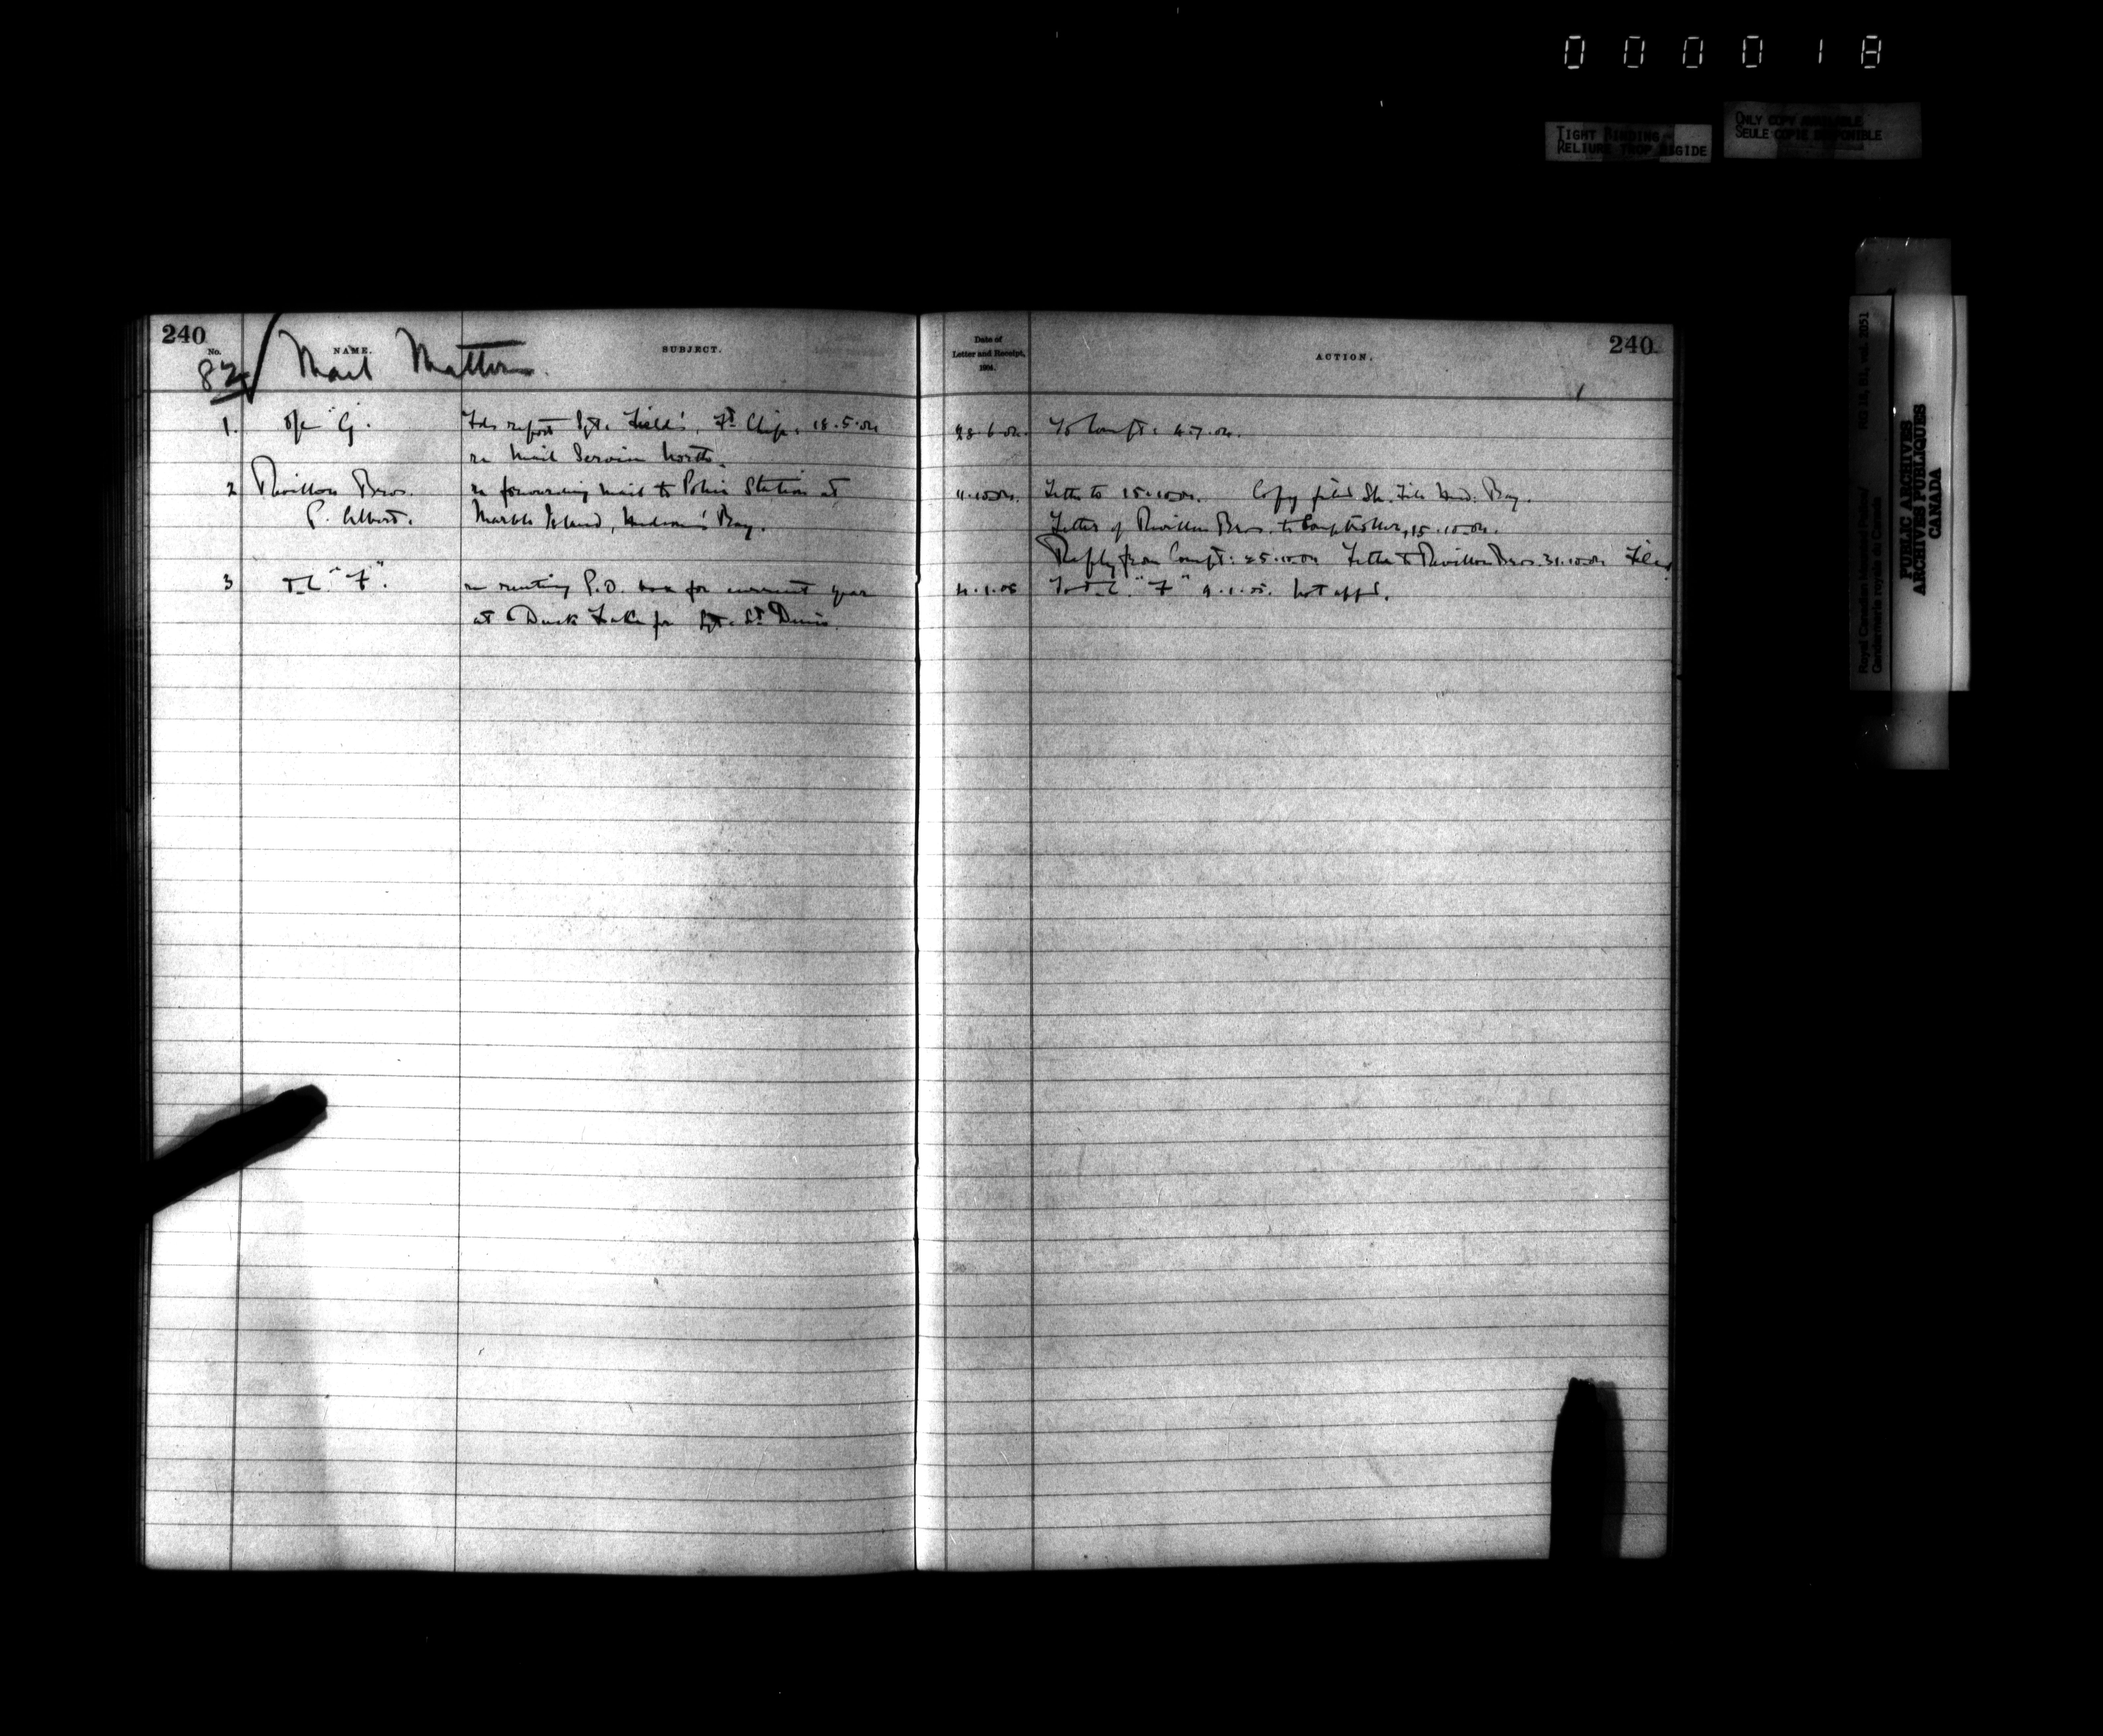 000018
TIGHT BINDING
RELIURE TROP RIGIDE
ONLY COPY AVAILABLE
SEULE COPIE DISPONIBLE
Royal Canadian Mounted Police/
Gendarmerie royale du Canada
RG 18, B1, vol. 2051
PUBLIC ARCHIVES
ARCHIVES PUBLIQUES
CANADA
240
No. NAME. SUBJECT.
82 Mail Matter.
1. O/c "G". Fds report Sgt. Field's, Ft. Chip. 18.5.04
re Mail Service North.
2 Revillon Bros. re forwarding mail to Police Station at
P. Albert. Marble Island, Hudson's Bay.
3 "F". re renting P.O. box for current year
at Duck Lake for Sgt. St. Denis.
240
Date of
Letter and Receipt,
1904.
ACTION.
28.6.04. To Compt. 4.7.04.
4.10.04. Letter to 15.10.04. Copy filed Sh. File Hud. Bay.
Letter of Revillon Bros. to Comptroller, 15.10.04.
Reply from Compt: 25.10.04 Letter to Revillon Bros. 31.10.04 Filed
4.1.05 To "F" 9.1.05. Not appd.